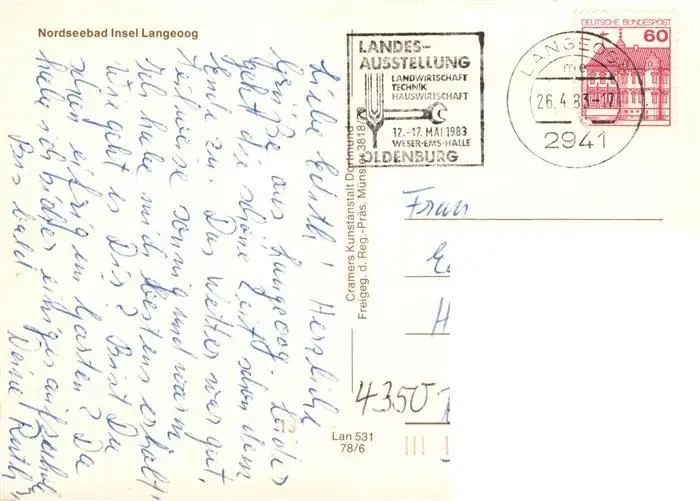 Nordseebad Insel Langeoog
LANDES-
AUSSTELLUNG
LANDWIRTSCHAFT
TECHNIK
HAUSWIRTSCHAFT
12.-17. MAI 1983
WESER-EMS-HALLE
OLDENBURG
LANGEOOG
26.4.83-17
2941
DEUTSCHE BUNDESPOST
60
Liebe! Herzliche
Grüße aus Langeoog. Leider
geht die schöne Zeit schon dem
Ende zu. Das Wetter war gut,
teilweise sonnig und warm
Ich habe mich bestens erholt!
Wie geht es Dir? Bist Du
schon eifrig im Garten? Da
habe ich später einiges aufzuholen
Bis bald! Deine Ruth
Cramers Kunstanstalt Dortmund
Freigeg. d. Reg.-Präs. Münster 3818/
Frau
E
H
4350
13
Lan 531
78/6